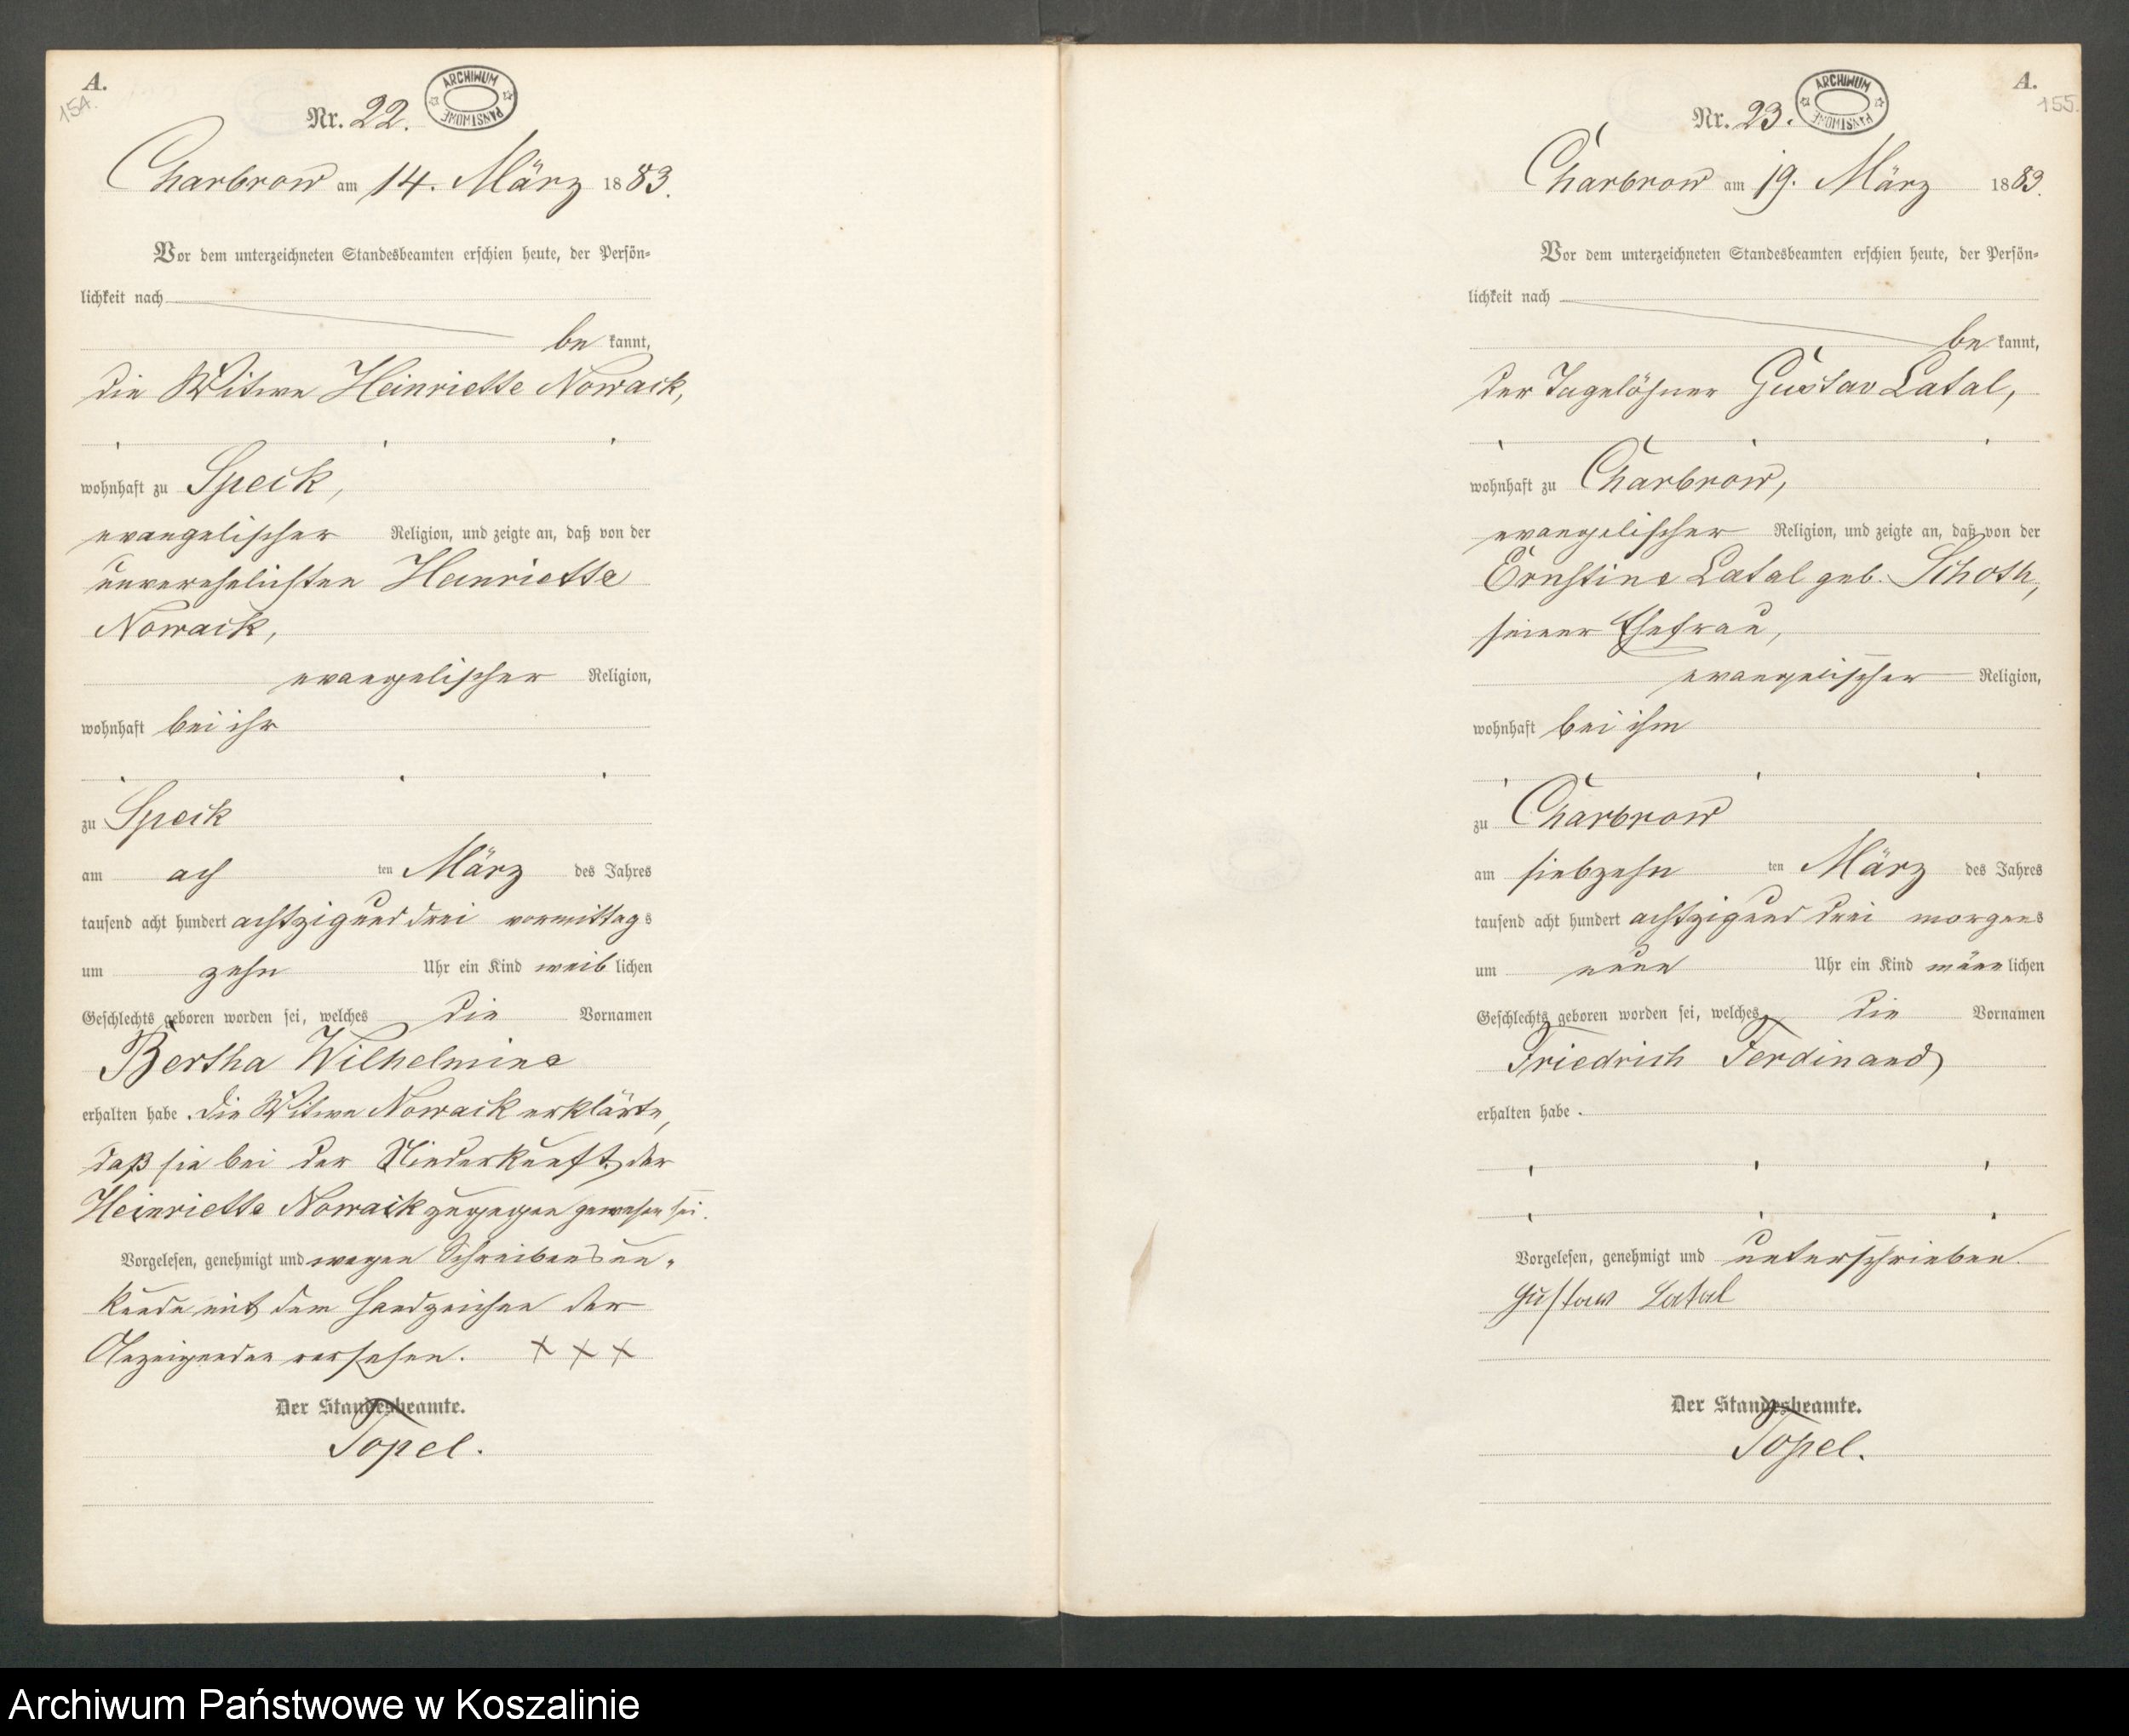 A.
154.
Nr. 22.
ARCHIWUM PAŃSTWOWE
Charbrow am 14. März 1883.
Vor dem unterzeichneten Standesbeamten erschien heute, der Persön-
lichkeit nach
be kannt,
die Witwe Heinriette Nowack,
wohnhaft zu Speck,
evangelischer Religion, und zeigte an, daß von der
unverehelichten Heinriette
Nowack,
evangelischer Religion,
wohnhaft bei ihr
zu Speck
am ach ten März des Jahres
tausend acht hundert achtzig und drei vormittags
um zehn Uhr ein Kind weiblichen
Geschlechts geboren worden sei, welches die Vornamen
Bertha Wilhelmine
erhalten habe. Die Witwe Nowack erklärte,
daß sie bei der Niederkunft der
Heinriette Nowack zugegen gewesen sei.
Vorgelesen, genehmigt und wegen Schreibensun-
kunde mit dem Handzeichen der
Anzeigenden versehen. + + +
Der Standesbeamte.
Topel.
A.
155.
Nr. 23.
ARCHIWUM PAŃSTWOWE
Charbrow am 19. März 1883.
Vor dem unterzeichneten Standesbeamten erschien heute, der Persön-
lichkeit nach
be kannt,
der Tagelöhner Gustav Latal,
wohnhaft zu Charbrow,
evangelischer Religion, und zeigte an, daß von der
Ernstine Latal geb. Schoth,
seiner Ehefrau,
evangelischer Religion,
wohnhaft bei ihm
zu Charbrow
am siebzehn ten März des Jahres
tausend acht hundert achtzig und drei morgens
um neun Uhr ein Kind männlichen
Geschlechts geboren worden sei, welches die Vornamen
Friedrich Ferdinand
erhalten habe.
Vorgelesen, genehmigt und unterschrieben.
Gustaw Latal
Der Standesbeamte.
Topel.
Archiwum Państwowe w Koszalinie